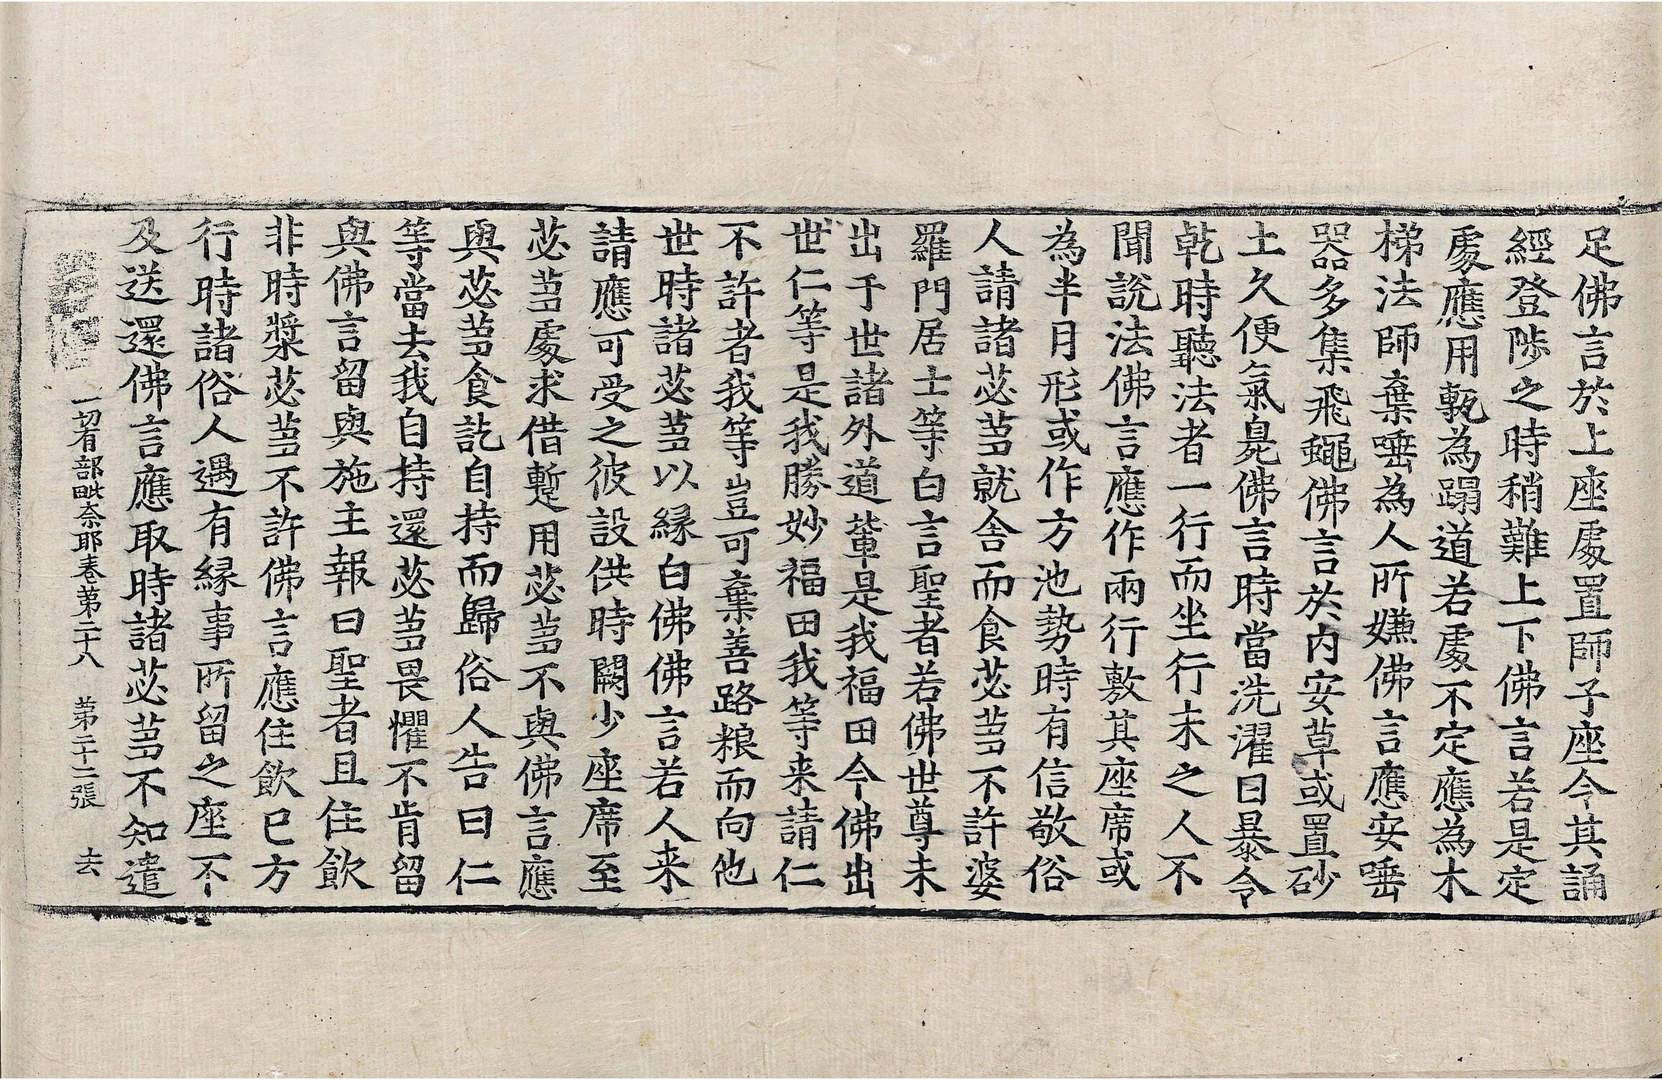 足佛言於上座處置師子座令其誦
經登陟之時稍難上下佛言若是定
處應用甎為蹋道若處不定應為木
梯法師棄唾為人所嫌佛言應安唾
器多集飛蠅佛言於內安草或置砂
土久便氣臭佛言時當洗濯日暴令
乾時聽法者一行而坐行末之人不
聞說法佛言應作兩行敷其座席或
為半月形或作方池勢時有信敬俗
人請諸苾芻就舍而食苾芻不許婆
羅門居士等白言聖者若佛世尊未
出于世諸外道輩是我福田今佛出
世仁等是我勝妙福田我等来請仁
不許者我等豈可棄善路粮而向他
世時諸苾芻以緣白佛佛言若人来
請應可受之彼設供時闕少座席至
苾芻處求借蹔用苾芻不與佛言應
與苾芻食訖自持而歸俗人告曰仁
等當去我自持還苾芻畏懼不肯留
與佛言留與施主報曰聖者且住飲
非時漿苾芻不許佛言應住飲已方
行時諸俗人遇有緣事所留之座不
及送還佛言應取時諸苾芻不知遣
一切有部毗奈耶卷第二十八 第二十二張 去